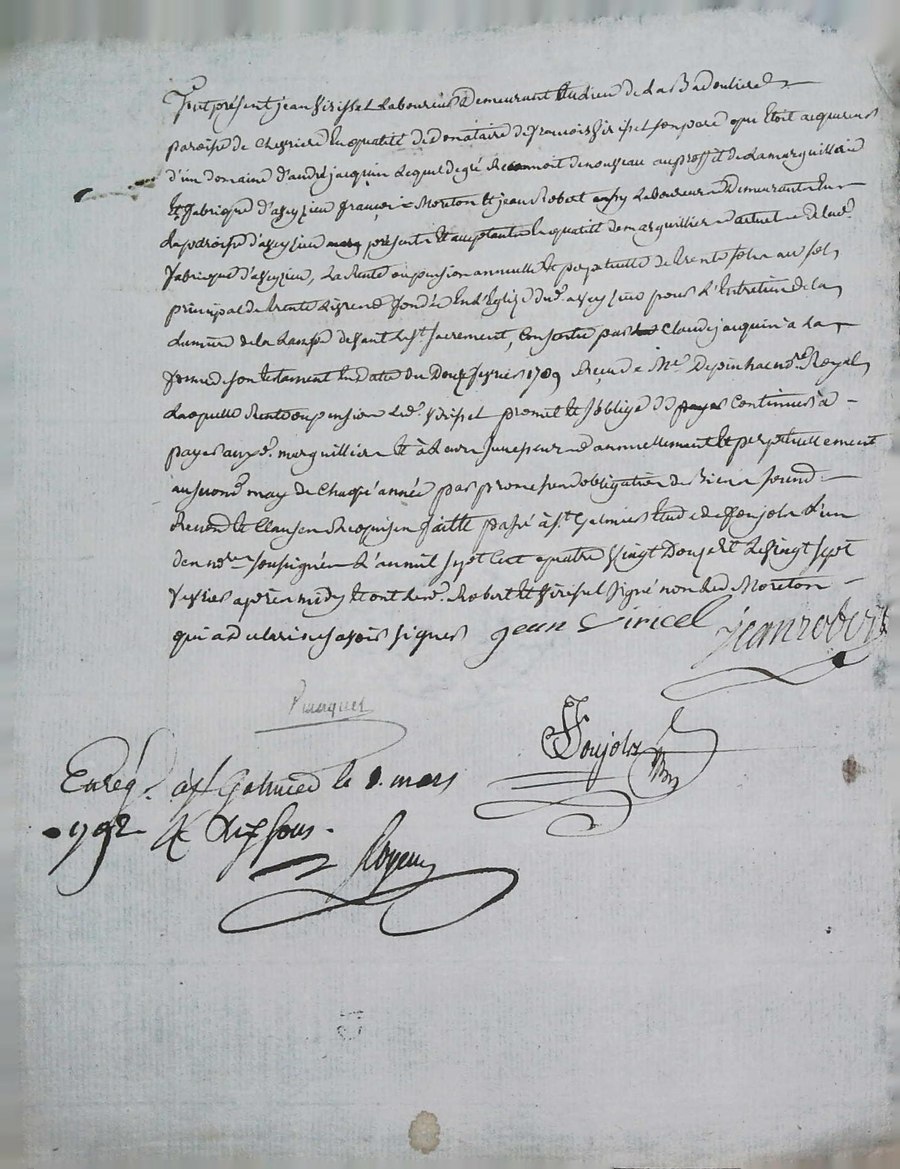 Fut présent jean Virissel Laboureur Demeurant au Lieu de La Badouliere
paroisse de Chevriere en qualité de Donataire de françois Virissel son pere qui étoit acquereur
d'un domaine d'andré jacquin Lequel de gré Reconnoit de nouveau au proffit de La marguillerie
et fabrique d'aveyzieu françois Moreton et jean Robert Laboureurs Demeurants en
La paroisse d'aveyzieu présents et acceptants en qualité de marguilliers actuels de Lad.
fabrique d'aveyzieu, La Rente ou pension annuelle et perpetuelle de trente sols au sol
principal de trente Livres fondée en L'Eglise dud. aveyzieu pour L'Entretien de la
Lumiere de la Lampe devant Le St. Sacrement, Consentie par Claude jacquin à La
forme de son testament en datte du Douze fevrier 1709 Reçu de Me. Depinhac nre. Royal
Laquelle Rente ou pension Led. Virissel promet et s'oblige de Continuer à
payer auxd. marguilliers et à Leurs successeurs annuellement et perpetuellement
au second may de Chaque année par promesse obligation de Biens soumd.
Renond. et Clauses Requises faitte passé à St. Galmier Etude de fonjols L'un
des nres. soussignés L'an mil sept Cent quatre Vingt Douze et Le Vingt sept
fevrier après midy et ont Led. Robert et Virissel signé non Led. Moreton
qui a declaré ne savoir signer jean Viricel jean robert
fonjols
Enreg. à St Galmier le 8. mars
1792 R dix sous.
Royeux